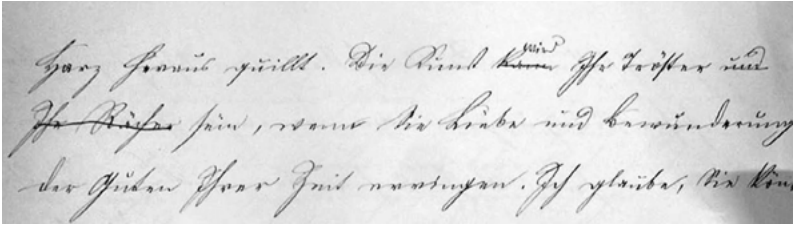 Harz heraus quillt. Die Kunst kann wird Ihr Tröster und
Ihr Rächer sein, wenn Sie Liebe und Bewunderung
der Guten Ihrer Zeit erringen. Ich glaube, Sie kön